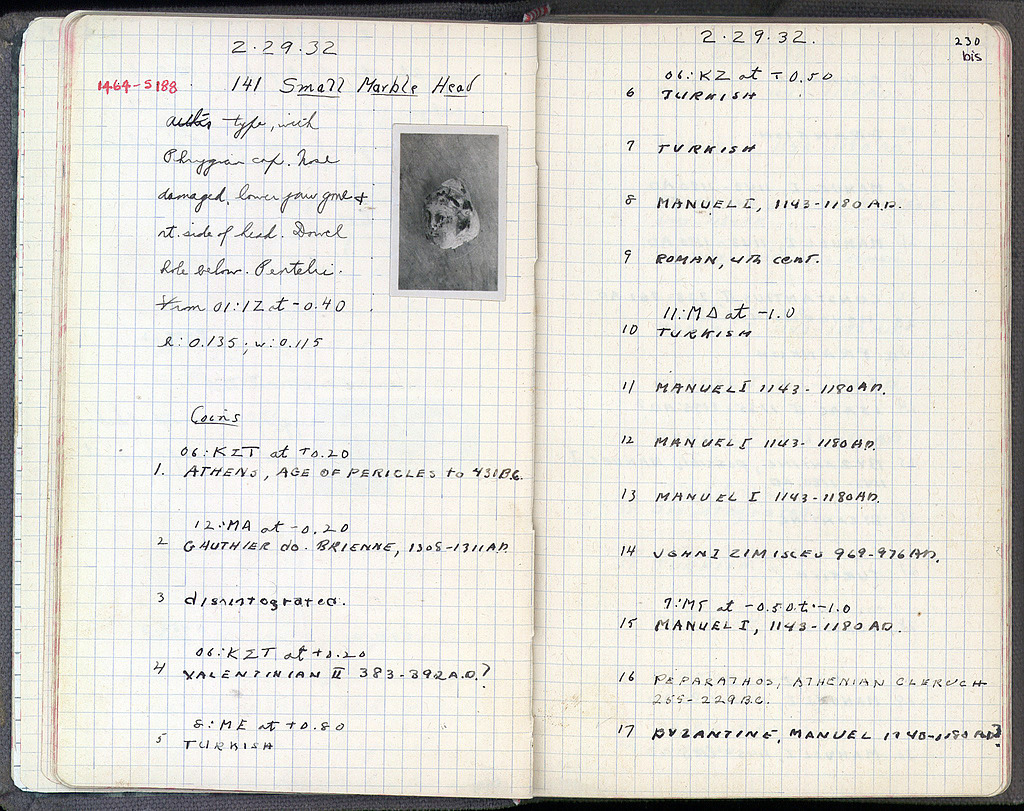 2·29·32
1464-S 188
141 Small Marble Head
type, with
Phrygian cap. Nose
damaged, lower jaw gone &
rt. side of head. Dowel
hole below. Pentelic.
From 01:IZ at -0.40
l: 0.135; w: 0.115
Coins
06:KΣT at +0.20
1. ATHENS, AGE OF PERICLES to 431 B.C.
12:MA at -0.20
2 GAUTHIER de BRIENNE, 1308-1311 A.D.
3 disintegrated.
06:KΣT at +0.20
4 VALENTINIAN II 383-392 A.D.?
8:ME at +0.80
5 TURKISH
2·29·32.
230
bis
06:KZ at +0.50
6 TURKISH
7 TURKISH
8 MANUEL I, 1143-1180 A.D.
9 ROMAN, 4th cent.
11:MΔ at -1.0
10 TURKISH
11 MANUEL I 1143-1180 A.D.
12 MANUEL I 1143-1180 A.D.
13 MANUEL I 1143-1180 A.D.
14 ZIMISCES 969-976 A.D.
at -0.50 to -1.0
15 MANUEL I, 1143-1180 A.D.
16 PEPARATHOS, ATHENIAN CLERUCH
255-229 B.C.
17 BYZANTINE, MANUEL 1143-1180 A.D.?